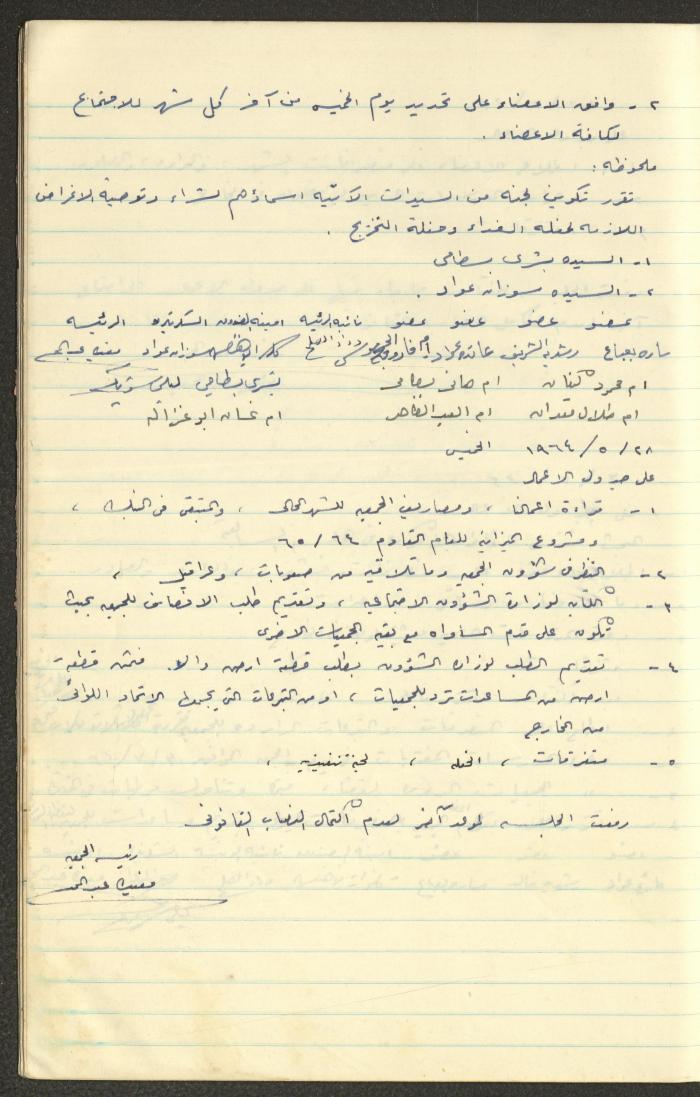 ٢ - وافق الاعضاء على تحديد يوم الخميس من آخر كل شهر للاجتماع
لكافة الاعضاء .
ملحوظه :
تقرر تكوين لجنه من السيدات الآتيه اسماؤهم لشراء وتوصية الاغراض
اللازمه لحفله الغداء وحفلة التخرج .
١ - السيده بشرى بسطامى
٢ - السيده سوزان عواد .
عضو عضو عضو عضو نائبه الرئيسه امينه الصندوق السكرتيره الرئيسه
ساره بعباع رشديه الشريف عائده عواد سوزان عواد
ام محمود كنعان ام هانى بسطامى بشرى بسطامي
ام طلال ام العبد الظاهر ام غسان ابو غزاله
٢٨ / ٥ / ١٩٦٤ الخميس
على جدول الاعمال
١ - قراءة اعمالنا ، ومصاريف الجمعيه للشهر الحالى ، والمتبقى فى البنك ،
ومشروع الميزانيه للعام القادم ٦٤ / ٦٥
٢ - النظر فى شؤون الجمعيه وما تلاقيه من صعوبات ، وعراقيل ،
٣ - الكتابه لوزارة الشؤون الاجتماعيه ، وتقديم طلب الانصاف للجمعيه بحيث
تكون على قدم المساواه مع بقيه الجمعيات الاخرى
٤ - تقديم الطلب لوزاره الشؤون بطلب قطعة ارض والا فثمن قطعة
ارض من المساعدات ترد للجمعيات ، او من التبرعات التى يجمعها الاتحاد اللوائى
من الخارج
٥ - متفرقات ، الحفله ، لجنة تنفيذيه ،
رفعت الجلسه لموعد آخر لعدم اكتمال النصاب القانونى
رئيسه الجمعيه